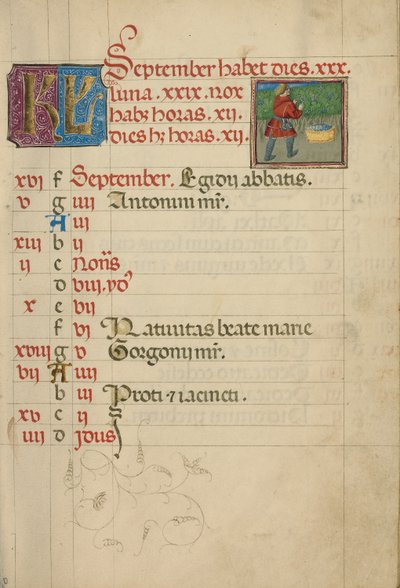 KL September habet dies .xxx.
luna .xxix. nox
habz horas .xii.
dies hz horas .xii.
xvi f September. Egidij abbatis.
v g iiii Antonini mr̄.
A iii
xiii b ii
ii c Nonis
d viii. yd9
x e vii
f vi Natiuitas beate marie
xviii g v Gorgonij mr̄.
vii A iiii
b iii Proti ⁊ iacincti.
xv c ii
iiii d Jdus